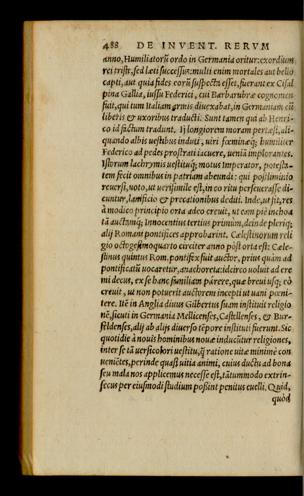 488 DE INVENT. RERVM
anno, Humiliatorũ ordo in Germania oritur: exordium
rei triste, sed læti successus: multi enim mortales aut bello
capti, aut quia fides eorũ suspecta esset, fuerant ex Cisal
pina Gallia, iussu Federici, cui Barbarubræ cognomen
fuit, qui tum Italiam armis diuexabat, in Germaniam cũ
liberis & uxoribus traducti. Sunt tamen qui ab Henri-
co id fictum tradunt. Ij longiorem moram pertæsi, ali-
quando albis uestibus induti, uiri fœminæq; humiliter
Federico ad pedes prostrati iacuere, ueniã implorantes.
Istorum lachrymis uestituq́; motus Imperator, potesta-
tem fecit omnibus in patriam abeundi: qui postliminio
reuersi, uoto, ut uerisimile est, in eo ritu perseuerasse di-
cuntur, lanificio & precationibus dediti. Inde, ut fit, res
à modico principio orta adeo creuit, ut eam piè inchoa
tã auctãmq́; Innocentius tertius primum, deinde pleriq;
alij Romani pontifices approbarint. Cælestinorum reli
gio octogesimoquarto circiter anno pòst orta est: Cæle-
stinus quintus Rom. pontifex fuit auctor, prius quàm ad
pontificatũ uocaretur, anachoreta: idcirco uoluit ad ere
mi decus, ex se hanc familiam párere, quæ breui usq; eò
creuit, ut non potuerit auctorem incepti ut uani pœni-
tere. Itẽ in Anglia diuus Gilbertus suam instituit religio
nẽ, sicuti in Germania Mellicenses, Castellenses, & Bur-
feldenses, alij ab alijs diuerso tẽpore instituti fuerunt. Sic
quotidie à nouis hominibus nouæ inducũtur religiones,
inter se tã uersicolori uestitu, q̃ ratione uitæ minimè con
uenietes, perinde quasi uitia animi, cuius ductu ad bona
seu mala nos applicemus necesse est, tãtummodo extrin-
secus per eiusmodi studium possint penitus euelli. Quid,
quòd